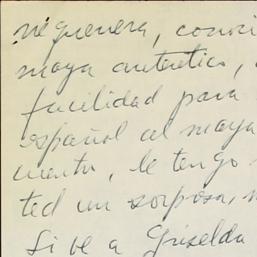 niquenera, conoci
maya autentico,
facilidad para
español al maya
mento, le tengo
ted un sorpresa,
Si ve a Griselda